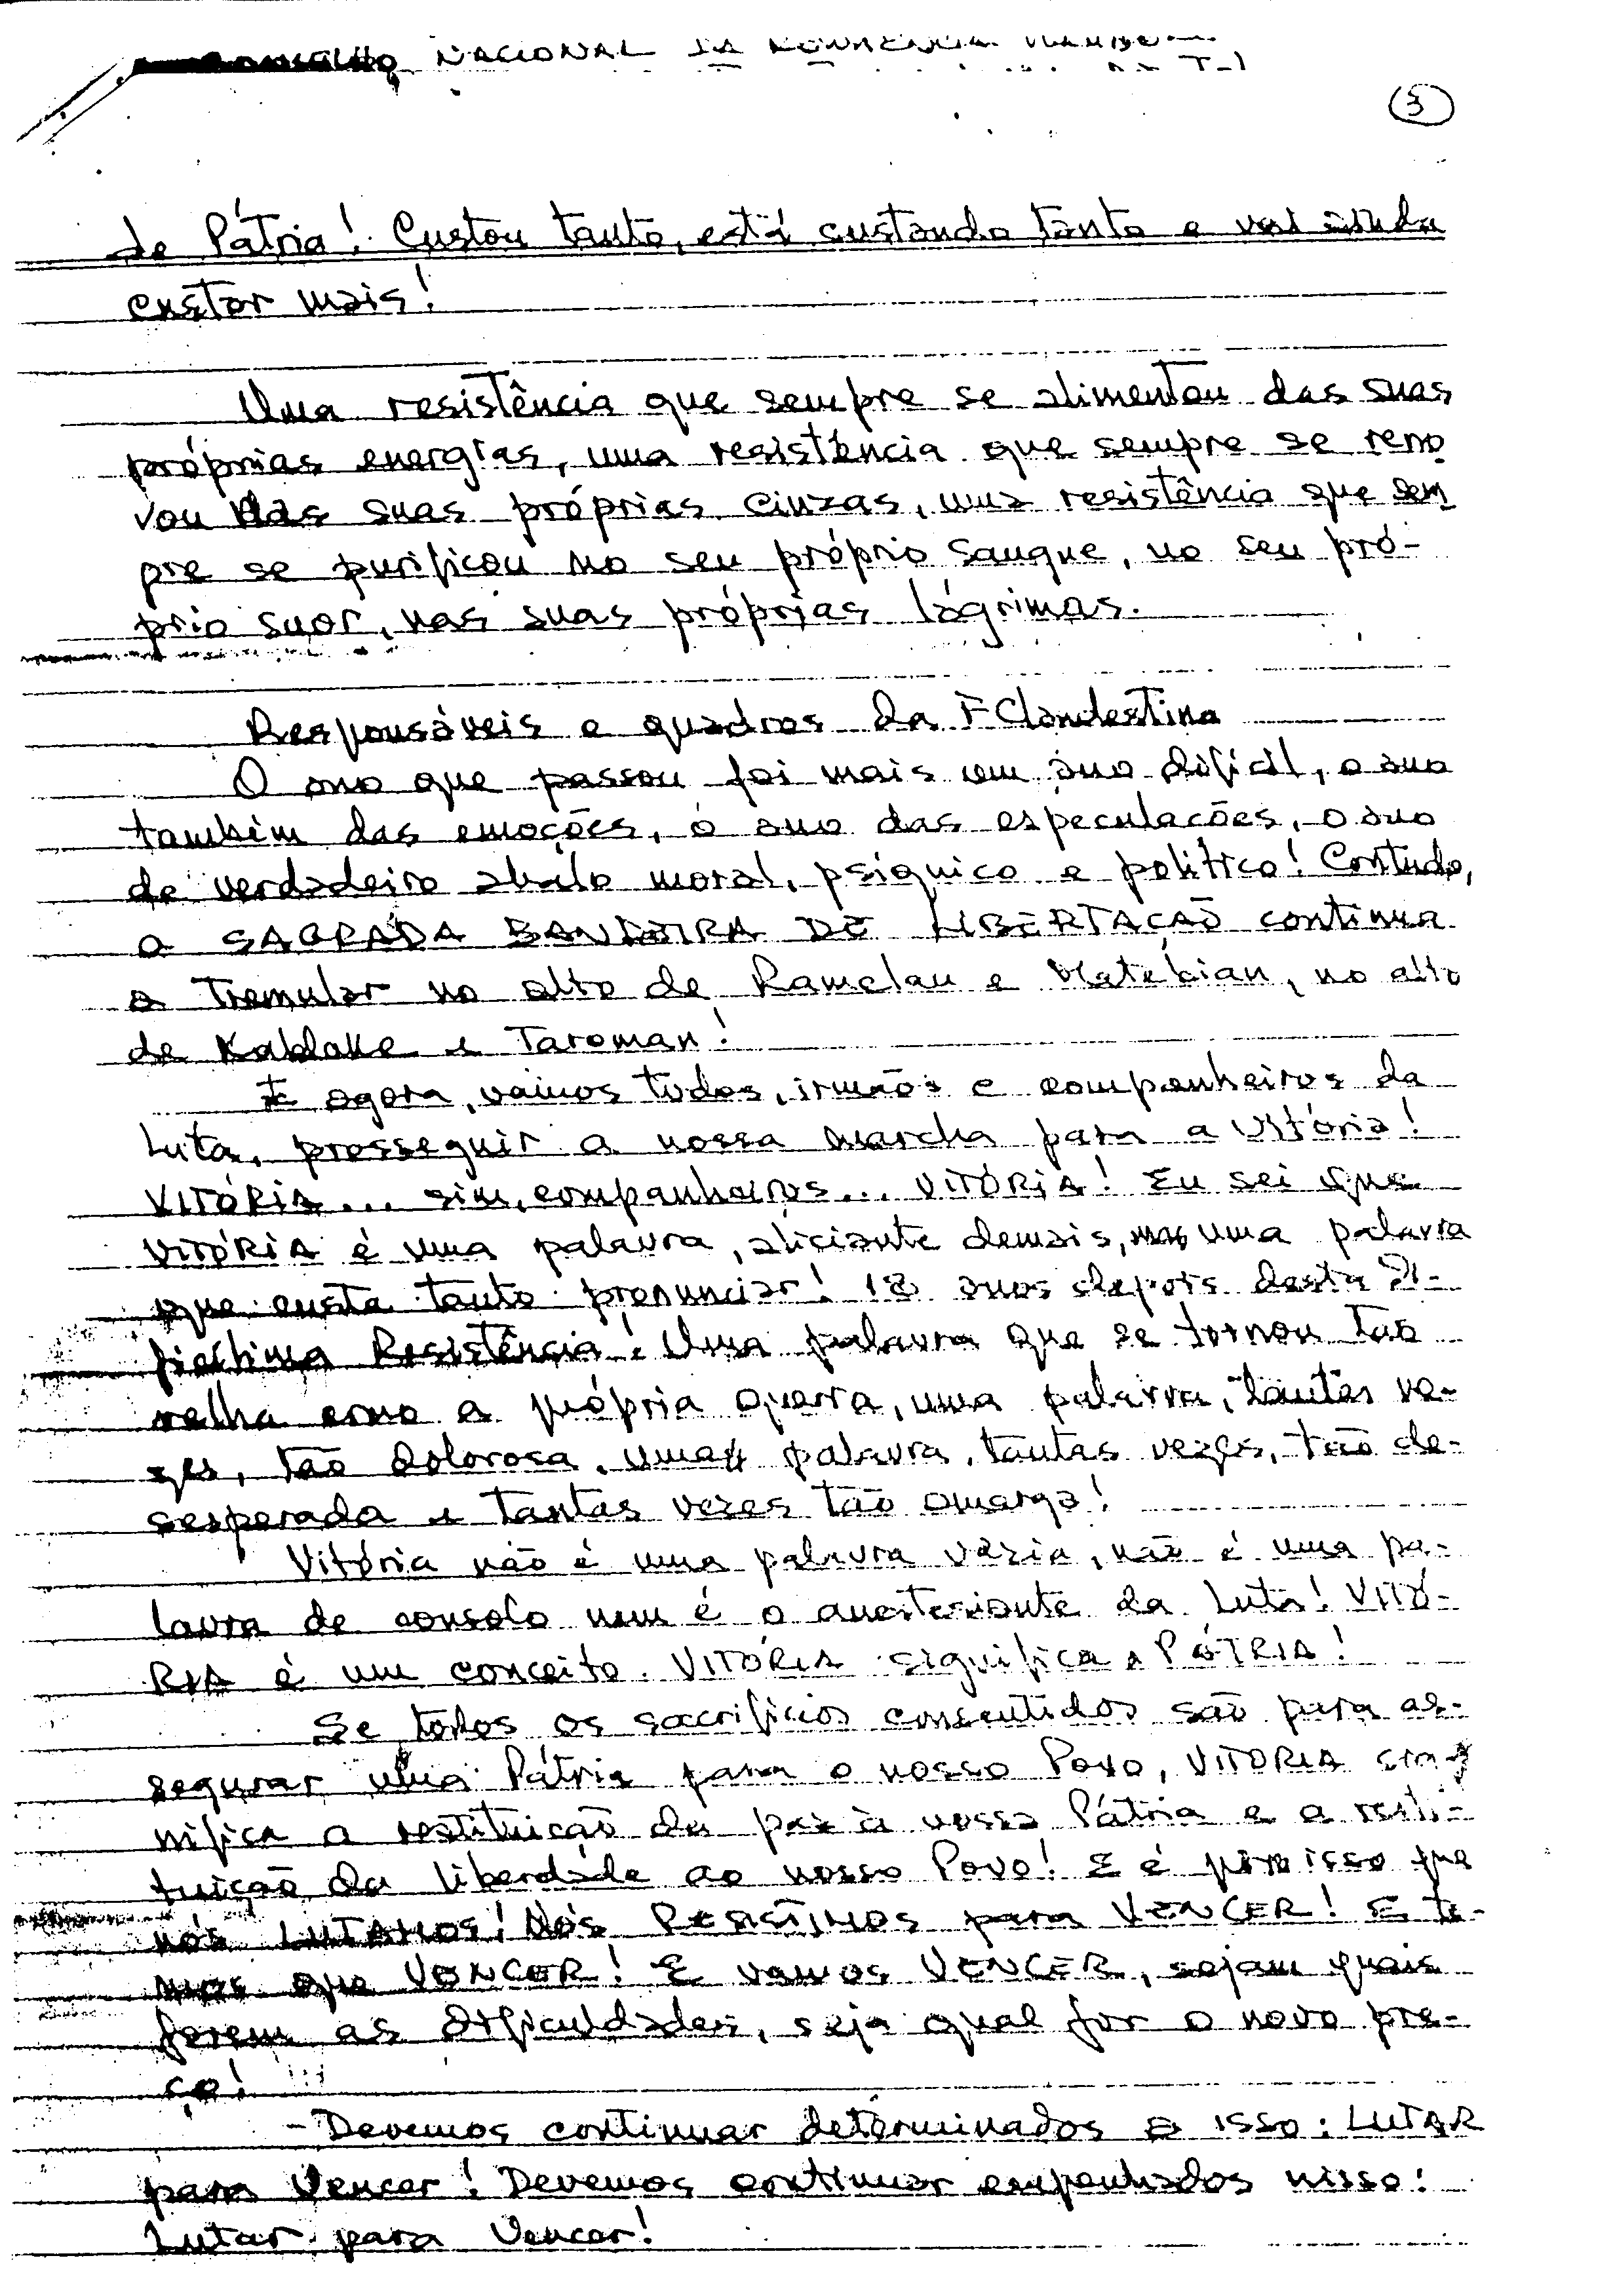 CONSELHO NACIONAL DA
3
de Pátria! Custou tanto, está custando tanto e vai ainda
custar mais!
Uma resistência que sempre se alimentou das suas
próprias energias, uma resistência que sempre se reno
vou das suas próprias cinzas, uma resistência que sem
pre se purificou no seu próprio sangue, no seu pró-
prio suor, nas suas próprias lágrimas.
Responsáveis e quadros da F. Clandestina
O ano que passou foi mais um ano difícil, o ano
também das emoções, o ano das especulações, o ano
de verdadeiro abalo moral, psíquico e político! Contudo,
a SAGRADA BANDEIRA DE LIBERTAÇÃO continua
a Tremular no alto de Ramelau e Matebian, no alto
de Kablake e Taroman!
E agora, vamos todos, irmãos e companheiros da
Luta, prosseguir a nossa marcha para a Vitória!
VITÓRIA... sim, companheiros... VITÓRIA! Eu sei que
VITÓRIA é uma palavra, aliciante demais, mas uma palavra
que custa tanto pronunciar! 18 anos depois desta di-
ficílima Resistência! Uma palavra que se tornou tão
velha como a própria guerra, uma palavra, tantas ve-
zes, tão dolorosa, uma palavra, tantas vezes, tão de-
sesperada e tantas vezes tão amarga!
Vitória não é uma palavra vazia, não é uma pa-
lavra de consolo nem é o anestesiante da Luta! VITÓ-
RIA é um conceito. VITÓRIA significa a PÁTRIA!
Se todos os sacrifícios consentidos são para as-
segurar uma Pátria para o nosso Povo, VITÓRIA sig-
nifica a restituição da paz à nossa Pátria e a resti-
tuição da liberdade ao nosso Povo! E é por isso que
nós LUTAMOS! Nós RESISTIMOS para VENCER! E te-
mos que VENCER! E vamos VENCER, sejam quais
forem as dificuldades, seja qual for o novo pre-
ço!
- Devemos continuar determinados a isso: LUTAR
para Vencer! Devemos continuar empenhados nisso:
Lutar para Vencer!